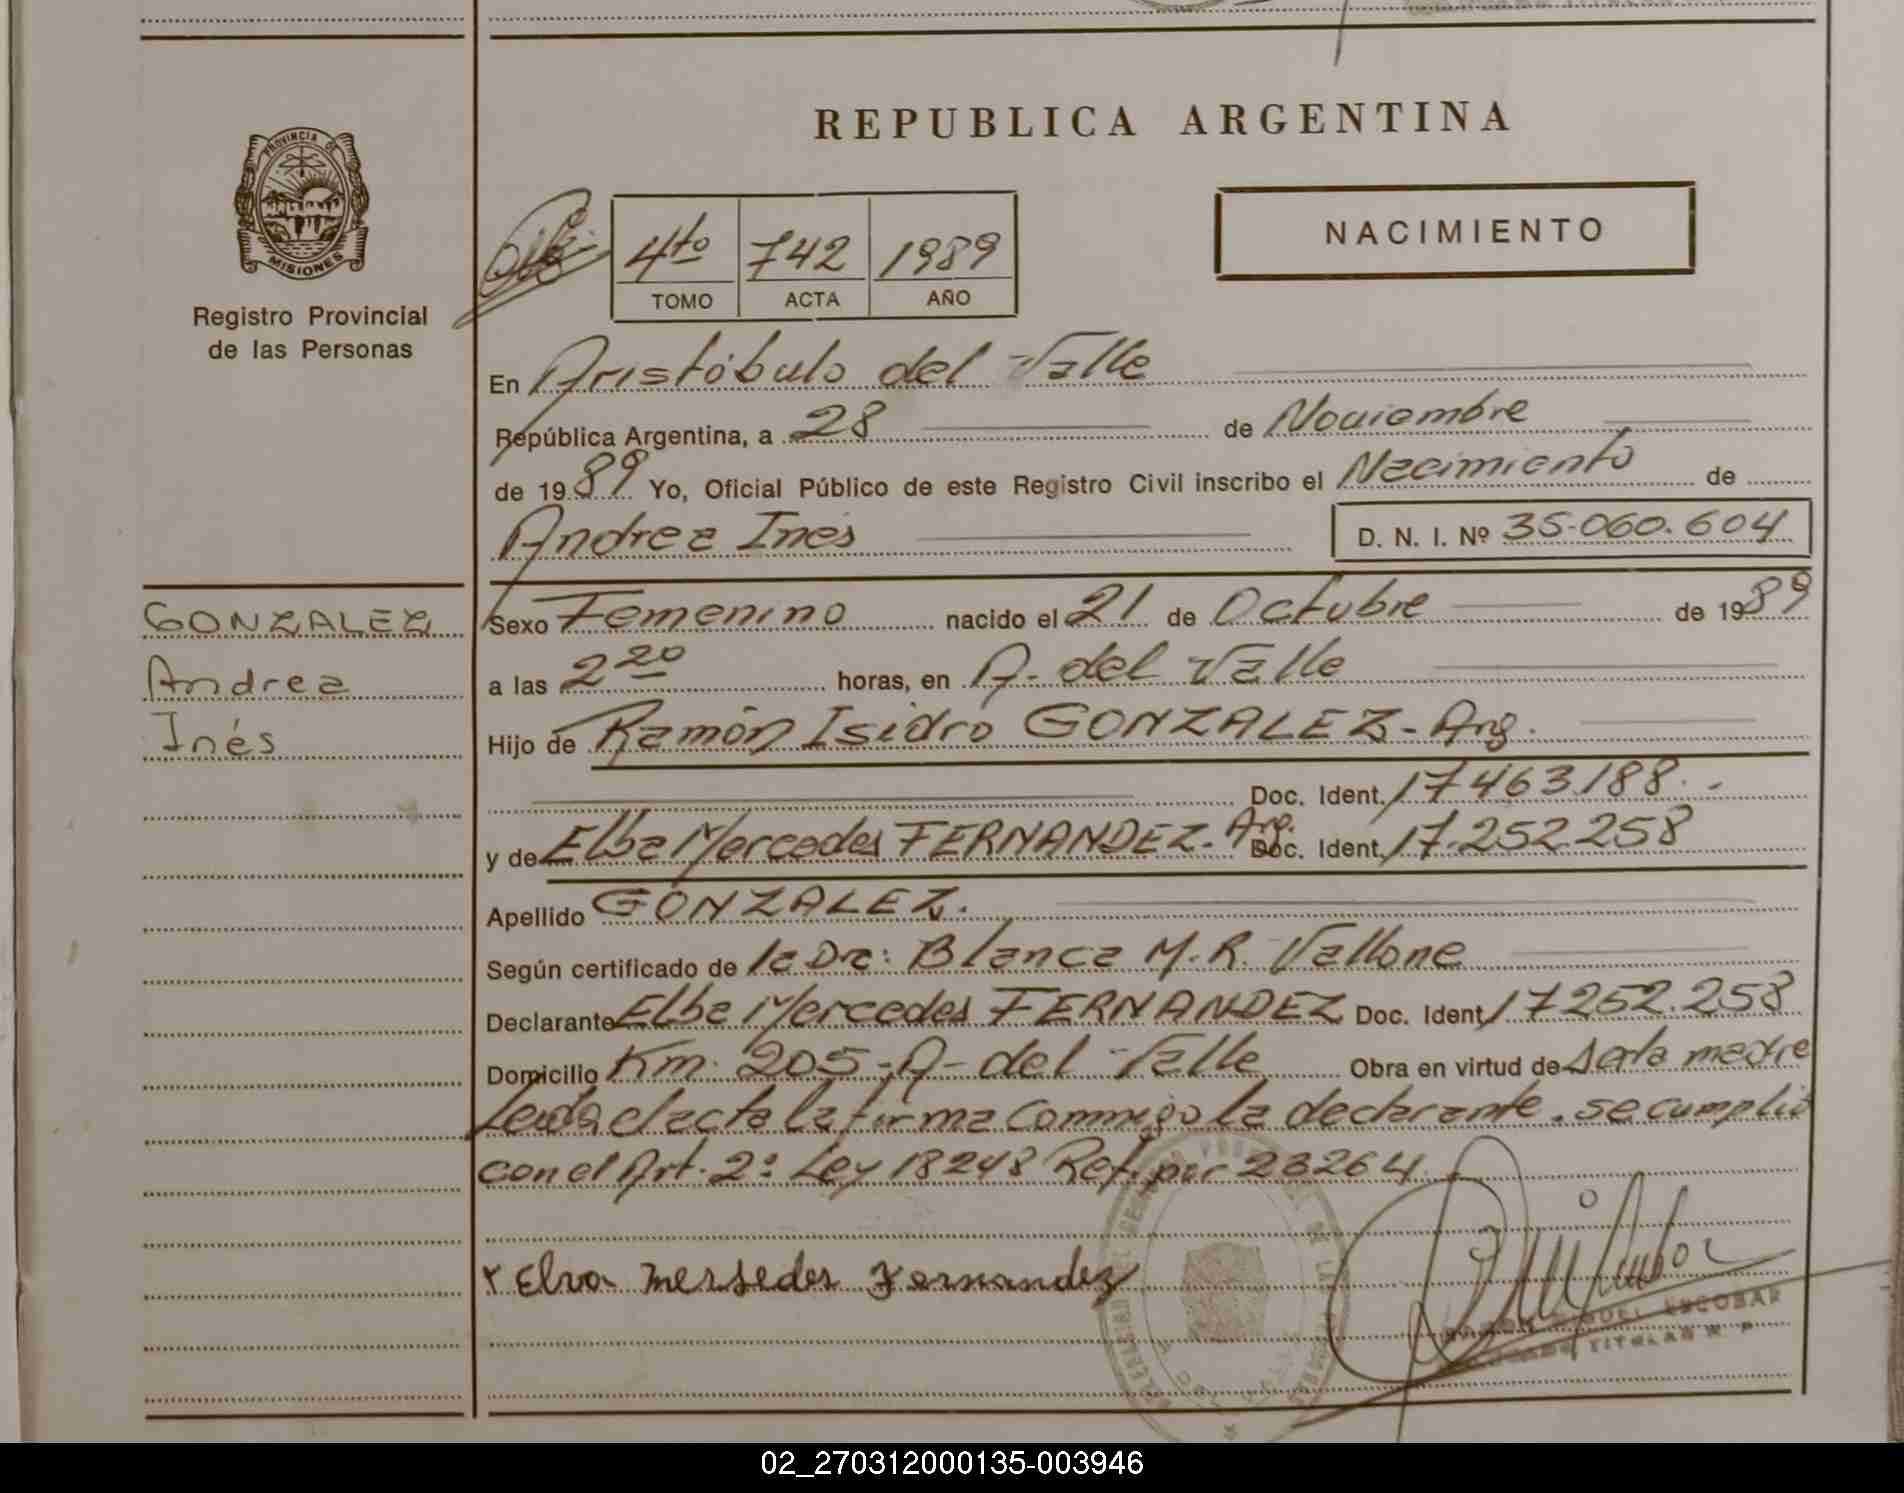 REPUBLICA ARGENTINA
PROVINCIA DE
MISIONES
Registro Provincial
de las Personas
4to 742 1989
TOMO ACTA AÑO
NACIMIENTO
En Aristóbulo del Valle
República Argentina, a 28 de Noviembre
de 1989 Yo, Oficial Público de este Registro Civil inscribo el Nacimiento de
Andrea Inés D. N. I. Nº 35.060.604
GONZALEZ
Andrea
Inés
Sexo Femenino nacido el 21 de Octubre de 1989
a las 2 20 horas, en A. del Valle
Hijo de Ramón Isidro GONZALEZ - Arg.
Doc. Ident. 17463.188.-
y de Elba Mercedes FERNANDEZ. Arg. Doc. Ident. 17.252.258
Apellido GONZALEZ.
Según certificado de la Dra: Blanca M. R. Vallone
Declarante Elba Mercedes FERNANDEZ Doc. Ident. 17252.258
Domicilio Km. 205 - A- del Valle Obra en virtud de Ser la madre
Leida el acta la firma conmigo la declarante. se cumplió
con el Art. 2º Ley 18248 Ref. por 23264
x Elva Mersedes Fernandez
ESCOBAR
TITULAR R P
02_270312000135-003946